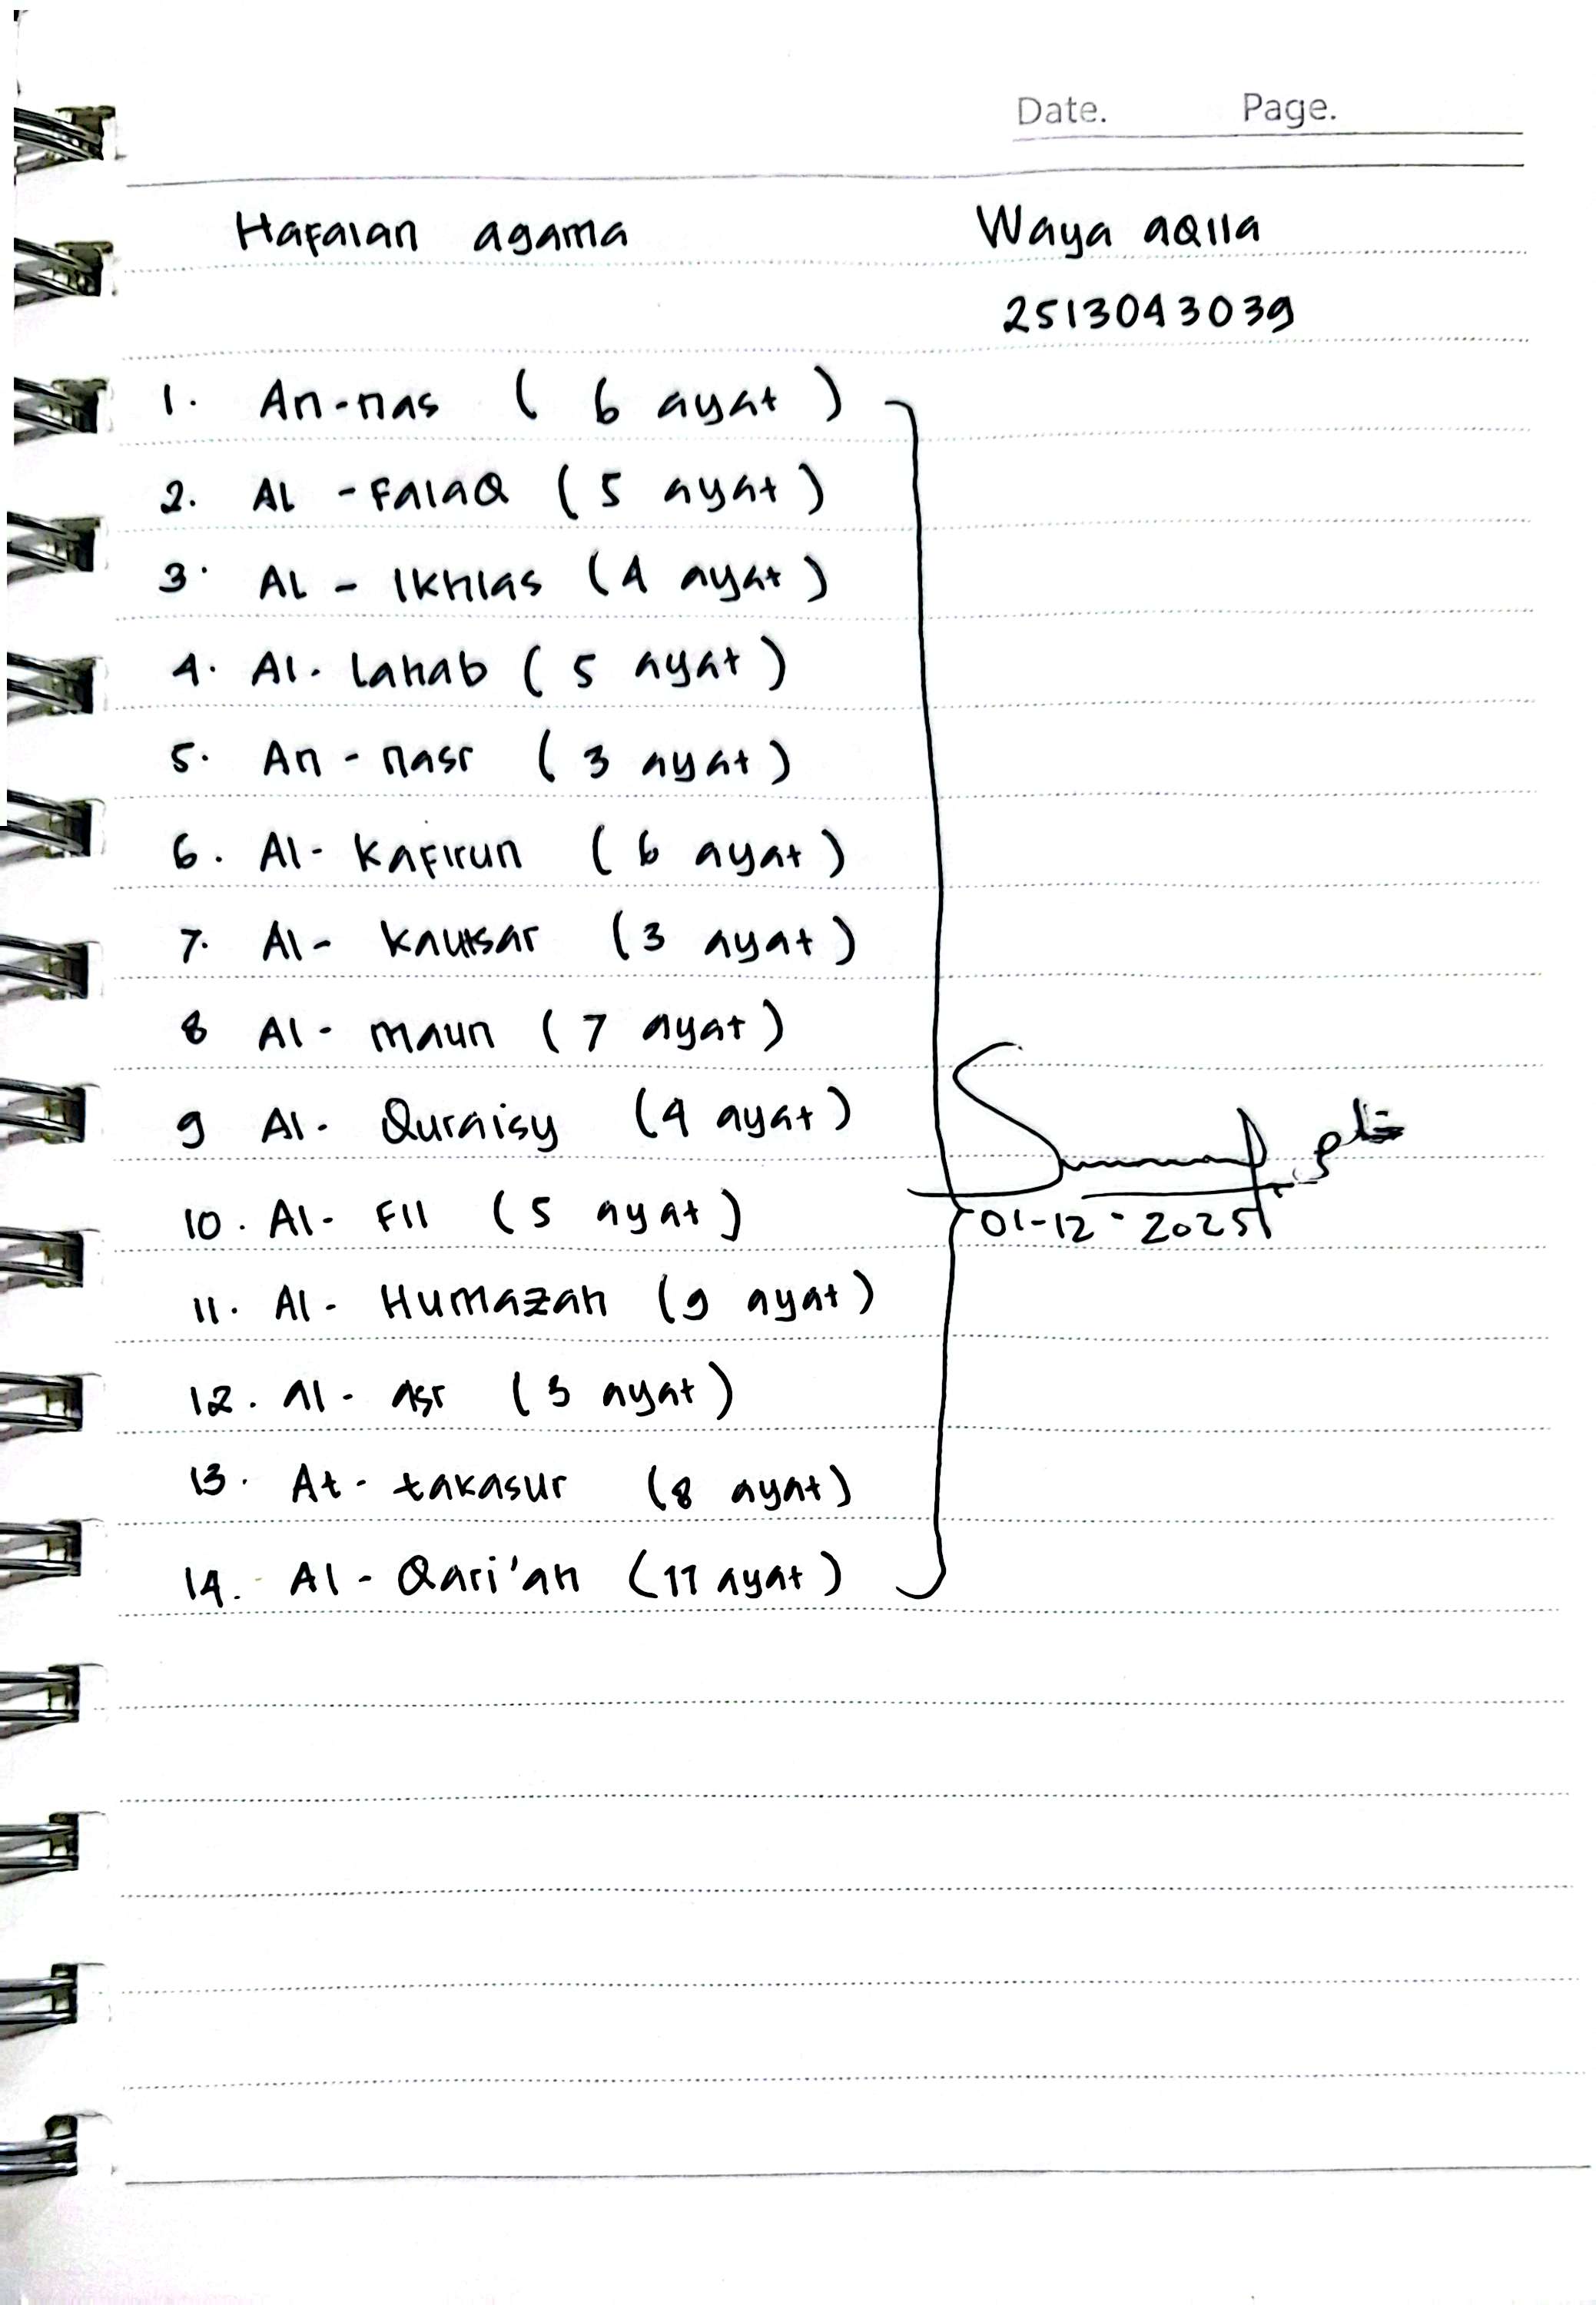 Date. Page.
Hafalan agama Waya aqila
2513043039
1. An-nas ( 6 ayat )
2. AL - Falaq ( 5 ayat )
3. AL - Ikhlas (4 ayat )
4. Al- Lahab ( 5 ayat )
5. An - nasr ( 3 ayat )
6. Al- Kafirun ( 6 ayat )
7. Al- Kautsar (3 ayat )
8 Al- maun ( 7 ayat )
9 Al- Quraisy (4 ayat )
10. Al- Fil ( 5 ayat )
01-12-2025
11. Al- Humazah (9 ayat )
12. Al- asr ( 3 ayat )
13. At- takasur (8 ayat )
14. Al- Qari'ah (11 ayat )